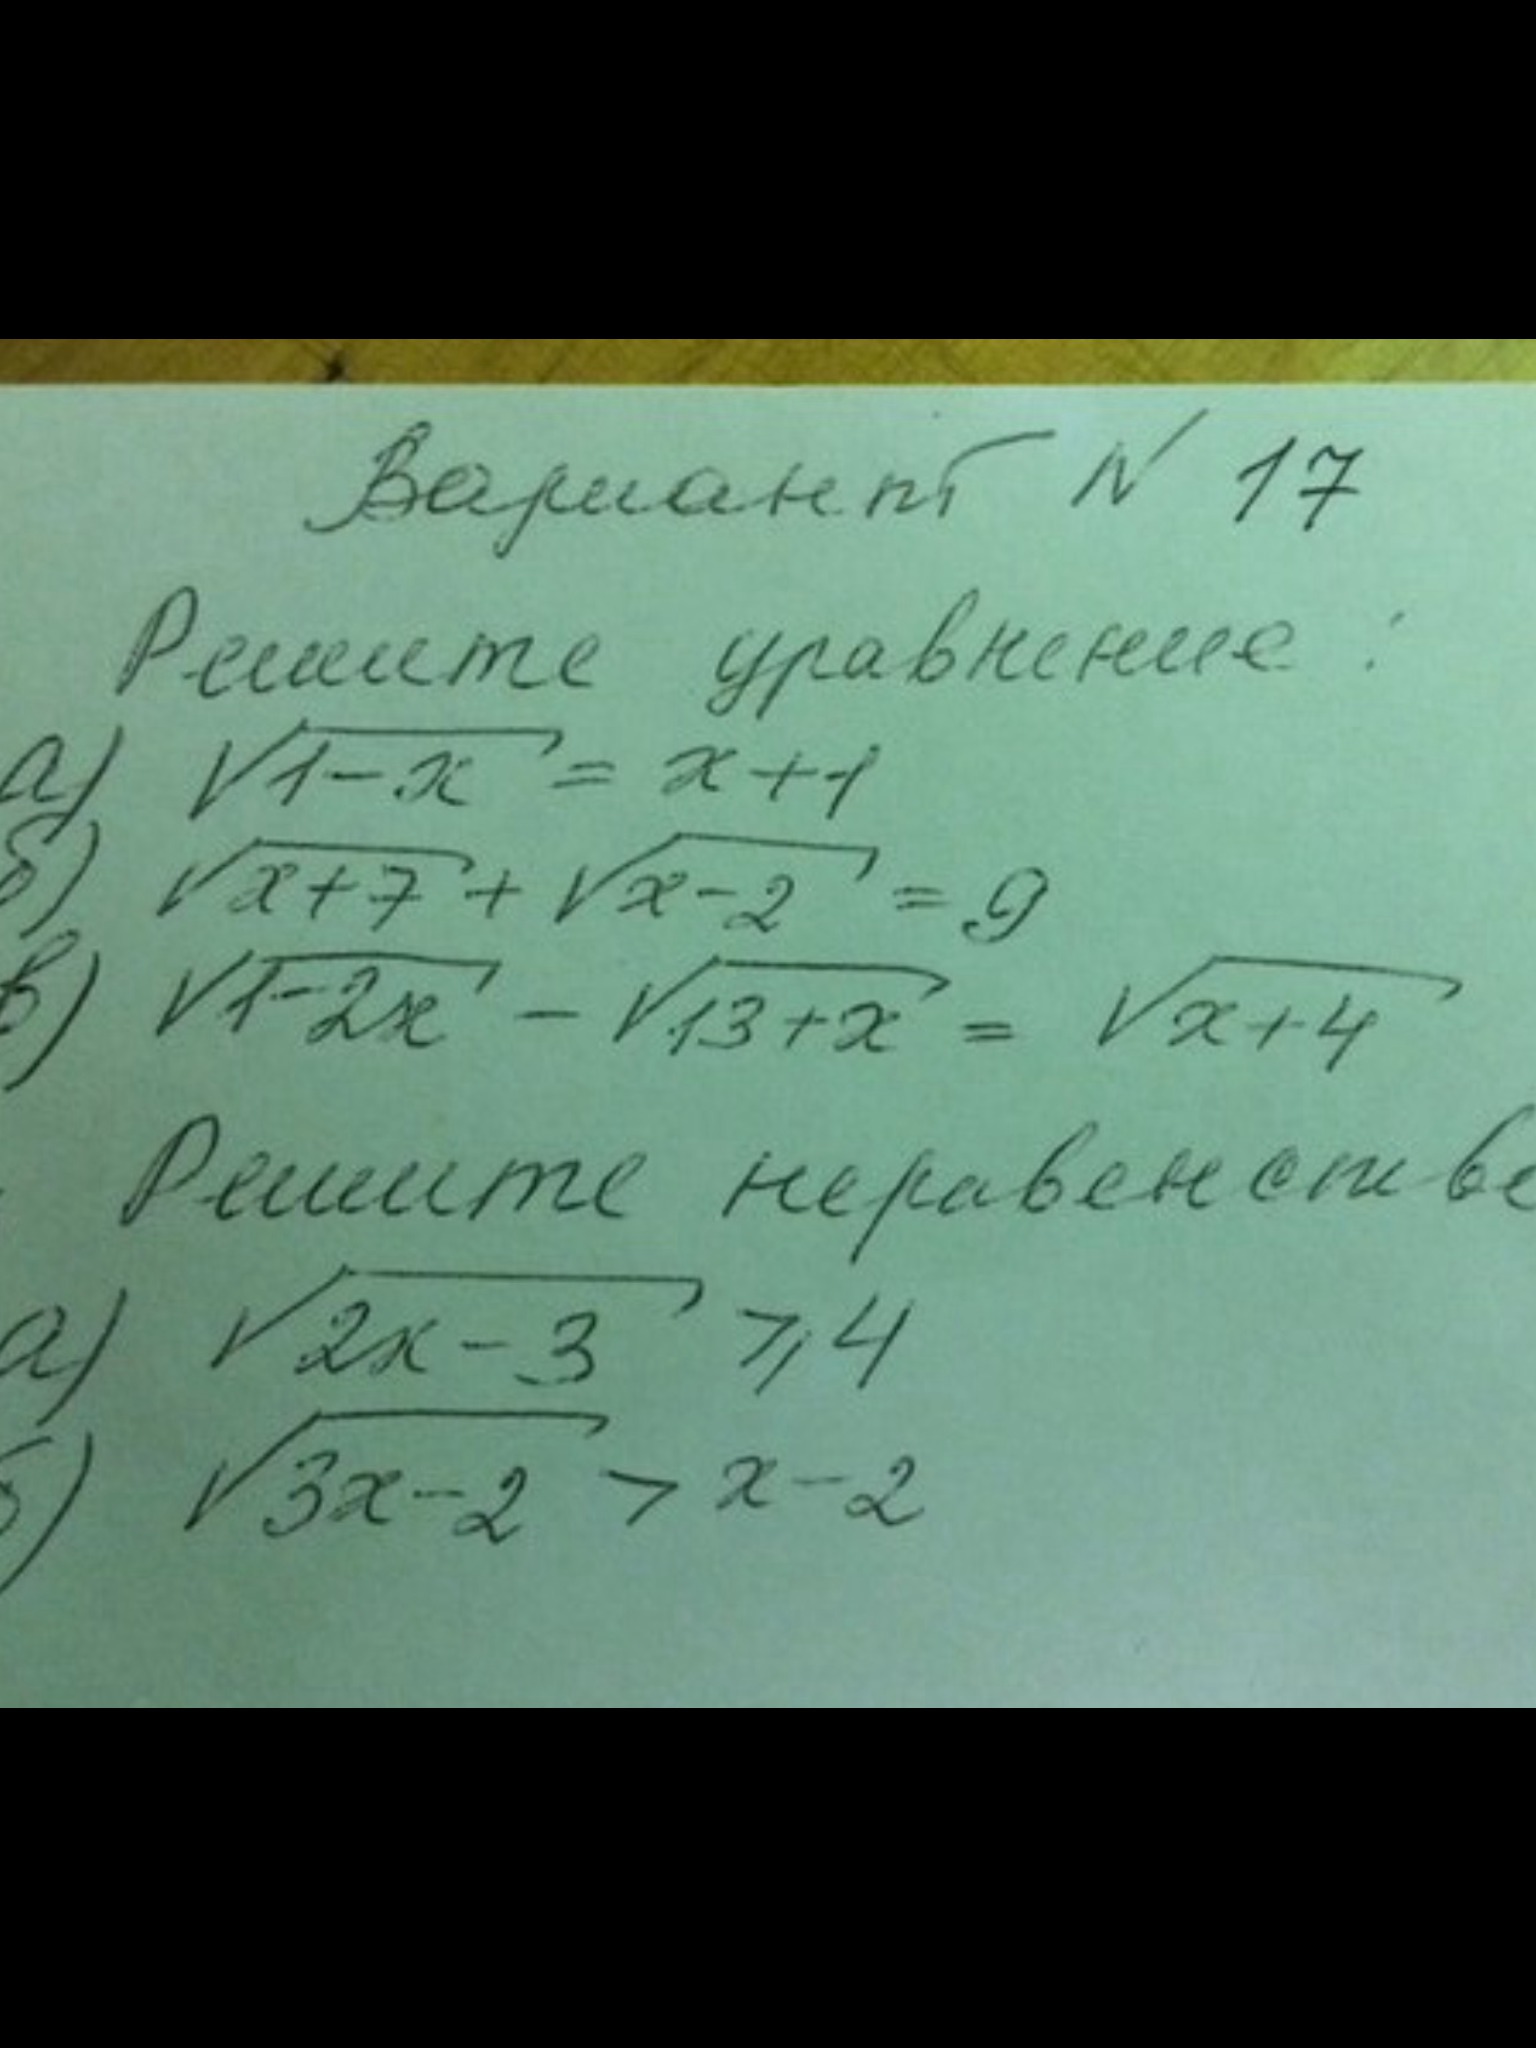 Вариант N 17
Решите уравнение:
а) √1-x = x+1
б) √x+7 + √x-2 = 9
в) √1-2x - √13+x = √x+4
Решите неравенстве
а) √2x-3 ⩾ 4
б) √3x-2 > x-2